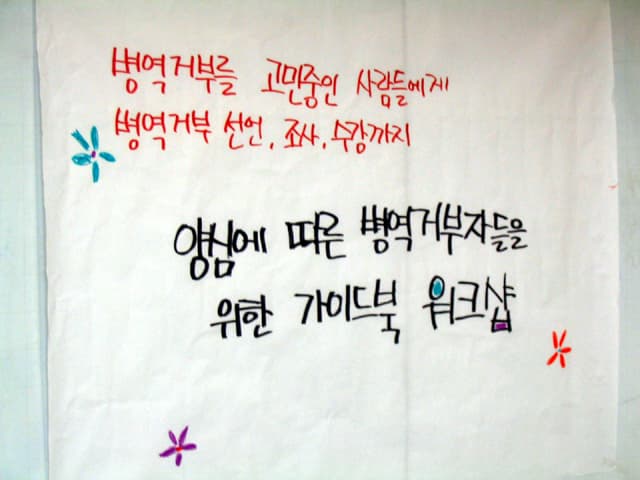 병역거부를 고민중인 사람들에게
병역거부 선언, 조사, 수감까지
양심에 따른 병역거부자들을
위한 가이드북 워크샵